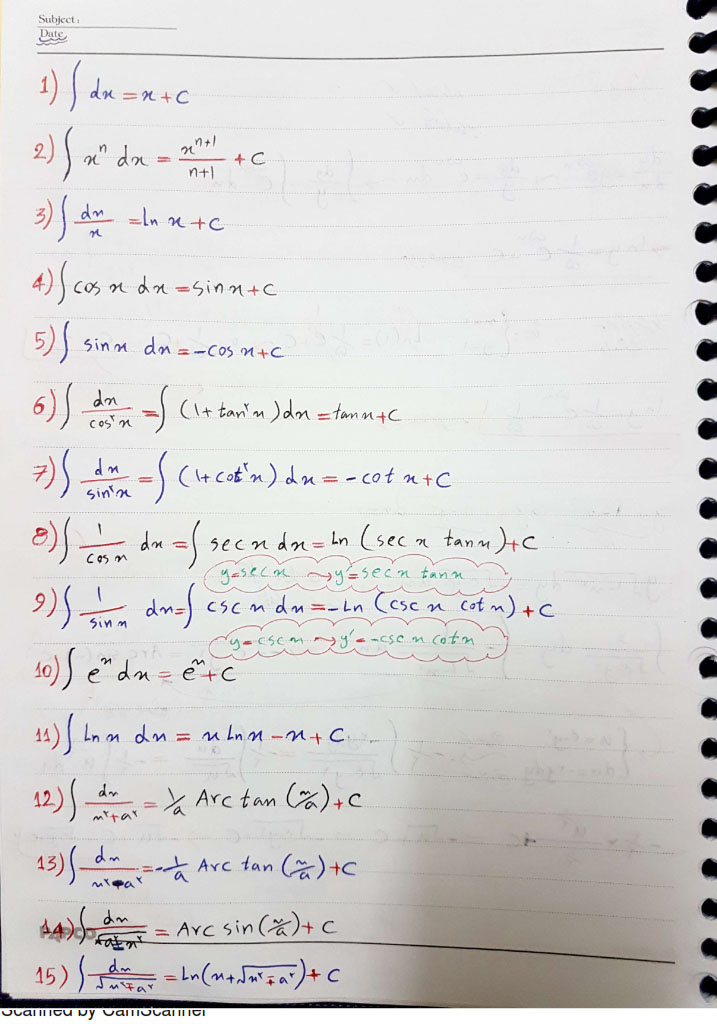 Subject:
Date
1) ∫ dx = x + C
2) ∫ xⁿ dx = xⁿ⁺¹/(n+1) + C
3) ∫ dx/x = ln x + C
4) ∫ cos x dx = sin x + C
5) ∫ sin x dx = -cos x + C
6) ∫ dx/cos²x = ∫ (1 + tan²x) dx = tan x + C
7) ∫ dx/sin²x = ∫ (1 + cot²x) dx = -cot x + C
8) ∫ 1/cos x dx = ∫ sec x dx = Ln (sec x tan x) + C
y = sec x → y' = sec x tan x
9) ∫ 1/sin x dx = ∫ csc x dx = -Ln (csc x cot x) + C
y = csc x → y' = -csc x cot x
10) ∫ eˣ dx = eˣ + C
11) ∫ Ln x dx = x Ln x - x + C
12) ∫ dx/(x²+a²) = 1/a Arc tan (x/a) + C
13) ∫ dx/(x² a²) = -1/a Arc tan (x/a) + C
14) ∫ dx/ = Arc sin (x/a) + C
15) ∫ dx/√(x²∓a²) = Ln (x + √(x²∓a²)) + C
Scanned by CamScanner